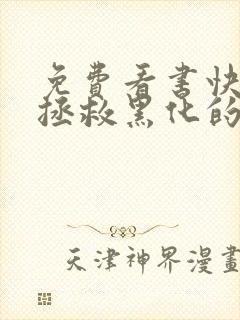 免費看書快
拯救黑化的
天津神界漫畫